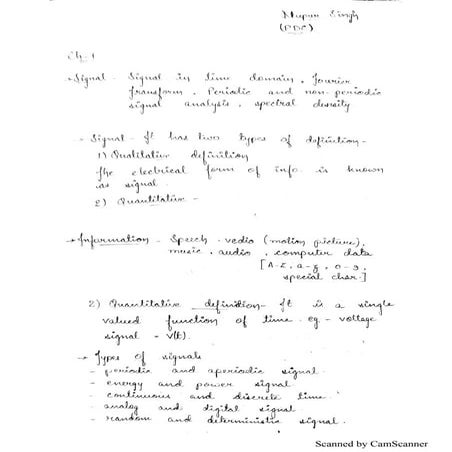 Nupur Singh
(PDC)
Ch-1
→ Signal - Signal in time domain, Fourier
transform, Periodic and non-periodic
signal analysis, spectral density
→ Signal - It has two types of definition -
1) Qualitative definition
The electrical form of info. is known
as signal.
2) Quantitative -
→ Information - Speech, vedio (motion picture),
music, audio, computer data
[A-Z, a-z, 0-9,
special char.]
2) Quantitative definition - It is a single
valued function of time. eg - voltage
signal = v(t).
→ Types of signals
- periodic and aperiodic signal.
- energy and power signal
- continuous and discrete time.
- analog and digital signal
- random and deterministic signal.
Scanned by CamScanner